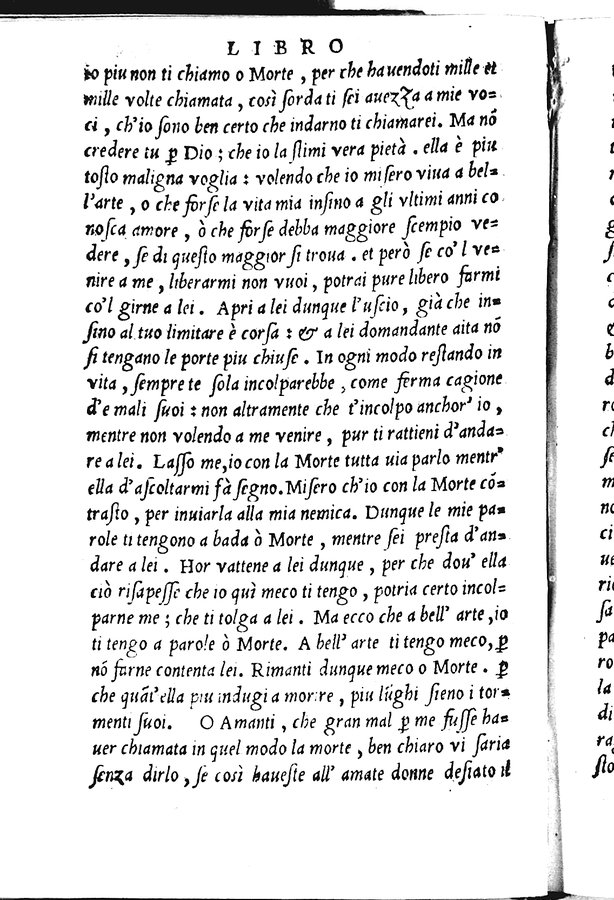 LIBRO
io piu non ti chiamo o Morte, per che hauendoti mille et
mille volte chiamata, così ſorda ti ſei auezza a mie vo=
ci, ch'io ſono ben certo che indarno ti chiamarei. Ma nõ
credere tu ꝑ Dio; che io la ſtimi vera pietà. ella è piu
toſto maligna voglia: volendo che io miſero viua a bel=
l'arte, o che forſe la vita mia inſino a gli vltimi anni co
noſca amore, ò che forſe debba maggiore ſcempio ve=
dere, ſe di queſto maggior ſi troua. et però ſe co'l ve=
nire a me, liberarmi non vuoi, potrai pure libero farmi
co'l girne a lei. Apri a lei dunque l'uſcio, già che in=
ſino al tuo limitare è corſa: & a lei domandante aita nõ
ſi tengano le porte piu chiuſe. In ogni modo reſtando in
vita, ſempre te ſola incolparebbe, come ferma cagione
d'e mali ſuoi: non altramente che t'incolpo anchor' io,
mentre non volendo a me venire, pur ti rattieni d'anda=
re a lei. Laſſo me, io con la Morte tutta uia parlo mentr'
ella d'aſcoltarmi fà ſegno. Miſero ch'io con la Morte cõ=
traſto, per inuiarla alla mia nemica. Dunque le mie pa=
role ti tengono a bada ò Morte, mentre ſei preſta d'an=
dare a lei. Hor vattene a lei dunque, per che dou' ella
ciò riſapeſſe che io quì meco ti tengo, potria certo incol=
parne me; che ti tolga a lei. Ma ecco che a bell' arte, io
ti tengo a parole ò Morte. A bell' arte ti tengo meco, ꝑ
nõ farne contenta lei. Rimanti dunque meco o Morte. ꝑ
che quãt'ella piu indugi a morire, piu lũghi ſieno i tor=
menti ſuoi. O Amanti, che gran mal ꝑ me fuſſe ha=
uer chiamata in quel modo la morte, ben chiaro vi ſaria
ſenza dirlo, ſe così haueſte all' amate donne deſiato il